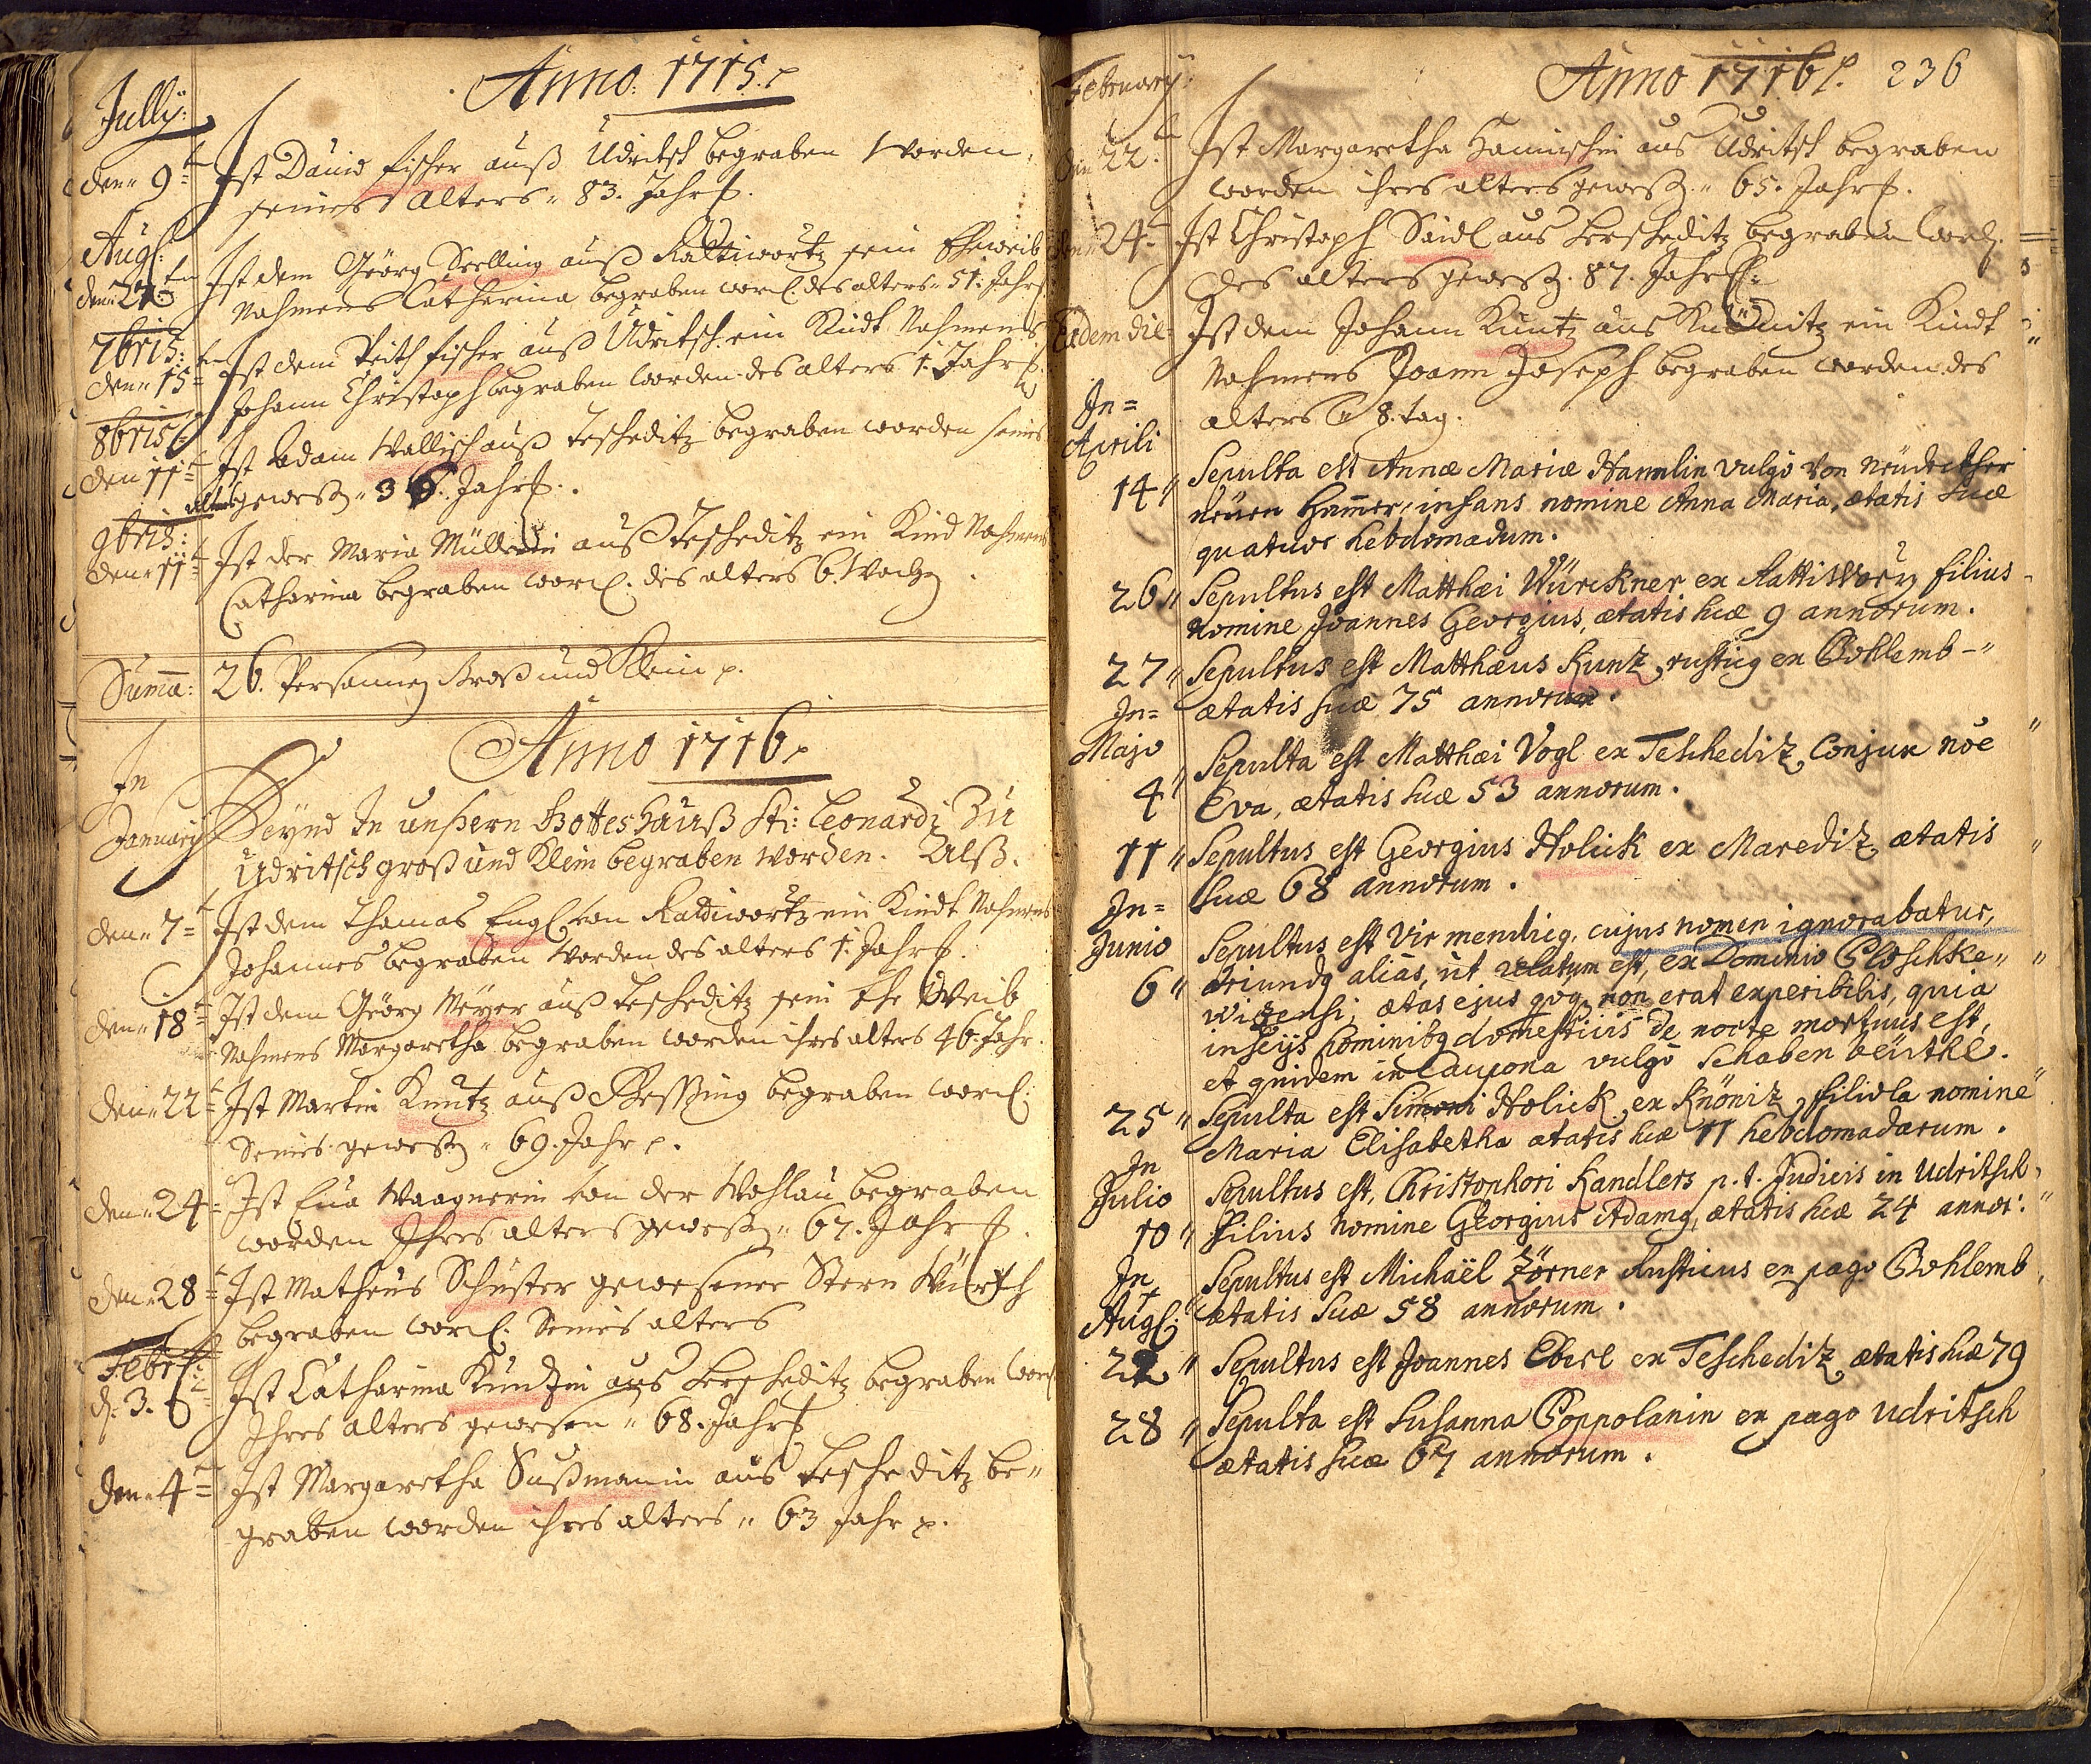 Anno: 1715.
Jullÿ:
den 9t Ist David Fischer auß Udritsch begraben worden,
seines Alters 83. Jahr
Aug: Ist dem Geörg Seelling auß Rattiwortz sein Eheweib
den Nahmens Catharina begraben word. des alters 51. Jahr
7bris: Ist dem Veith Fischer auß Udritsch ein Kindt Nahmens
den 15 Johann Christoph begraben worden des alters 1. Jahr
8bris Ist Adam Wallisch auß Tescheditz begraben worden seines
den 11t alters geweß. Jahr.
9bris: Ist der Maria Müllerin auß Tescheditz ein Kind Nahmens
den 11t Catharina begraben word. des alters 6. Wochen
Suma: 26. Personnen Groß und Klein
Anno 1716
In
January Seynd In unßern Gottes Hauß Sti: Leonardi Zu
Udritsch groß und Klein begraben worden. Alß.
den 7t Ist dem Thomas Engl von Rattiwortz ein Kindt Nahmens
Johannes begraben worden des alters 1. Jahr.
den 18t Ist dem Geörg Meÿer auß Tescheditz sein Ehe Weib
Nahmens Margaretha begraben worden ihres alters 46. Jahr.
den 22t Ist Martin Kuntz auß begraben word:
Seines geweßen 69. Jahr
den 24 Ist Eva Waagnerin von der Wohlau begraben
worden Ihres alters geweßen 67. Jahr
den 28 Ist Matheus Schuster gewesener Stern Würth
begraben word: Seines alters
Febr:
d: 3. Ist Catharina Kuntzin aus Tescheditz begraben word
Ihres alters gewesen 68. Jahr
den 4t Ist Margaretha Sußmanin aus Tescheditz be-
graben worden ihres alters 63 Jahr
Anno 1716. 236
February:
den 22. Ist Margaretha Hanischin aus Udritsch begraben
worden ihres alters geweß. 65. Jahr.
den 24t Ist Christoph Saidl aus Tescheditz begraben word.
des alters geweß. 87. Jahr
Eadem die: Ist dem Johann Kuntz aus Knönitz ein Kindt
Nahmens Joann Joseph begraben worden des
In= alters 8. tag.
Aprili
14 " Sepulta est Annæ Mariæ Hamlin vulgò von
neüen Hamer, infans nomine Anna Maria, ætatis suæ
quatuor hebdomadum.
26 " Sepultus est Matthæi Würckner ex Rattiswory filius
nomine Joannes Georgius, ætatis suæ 9 annorum.
27 " Sepultus est Matthæus Kunz, rusticq ex Bohlemb -"
In= ætatis suæ 75 annorum.
Majo
Sepulta est Matthæi Vogl ex Teschediz, Conjux noe "
4 " Eva, ætatis suæ 53 annorum.
11 " Sepultus est Georgius Holick ex Marediz, ætatis "
In= suæ 68 annorum.
Junio Sepultus est Vir mendicq, cujus nomen ignorabatur,
6 " oriundq aliàs, ut relatum est, ex Dominio Ploschke" "
wizensi; ætas ejus qvoq non erat experibilis, quia
insciis hominibq domesticis de nocte mortuus est,
et quidem in Caupona vulgò Schaben beüthl.
25 " Sepulta est Simoni Holick ex Knöniz, filiola nomine "
Maria Elisabetha ætatis suæ 11 hebdomadarum.
In
Julio Sepultus est, Christophori Kandlers p. t. Judicis in Udritsch,
10 " filius nomine Georgius Adamq, ætatis suæ 24 annor: "
In Sepultus est Michaël Zörner Rusticus ex pago Bohlemb
Aug: " ætatis suæ 58 annorum.
22 " Sepultus est Joannes Eberl ex Teschediz ætatis suæ 79
28 " Sepulta est Susanna Poppolanin ex pago Udritsch
ætatis suæ 67 annorum.